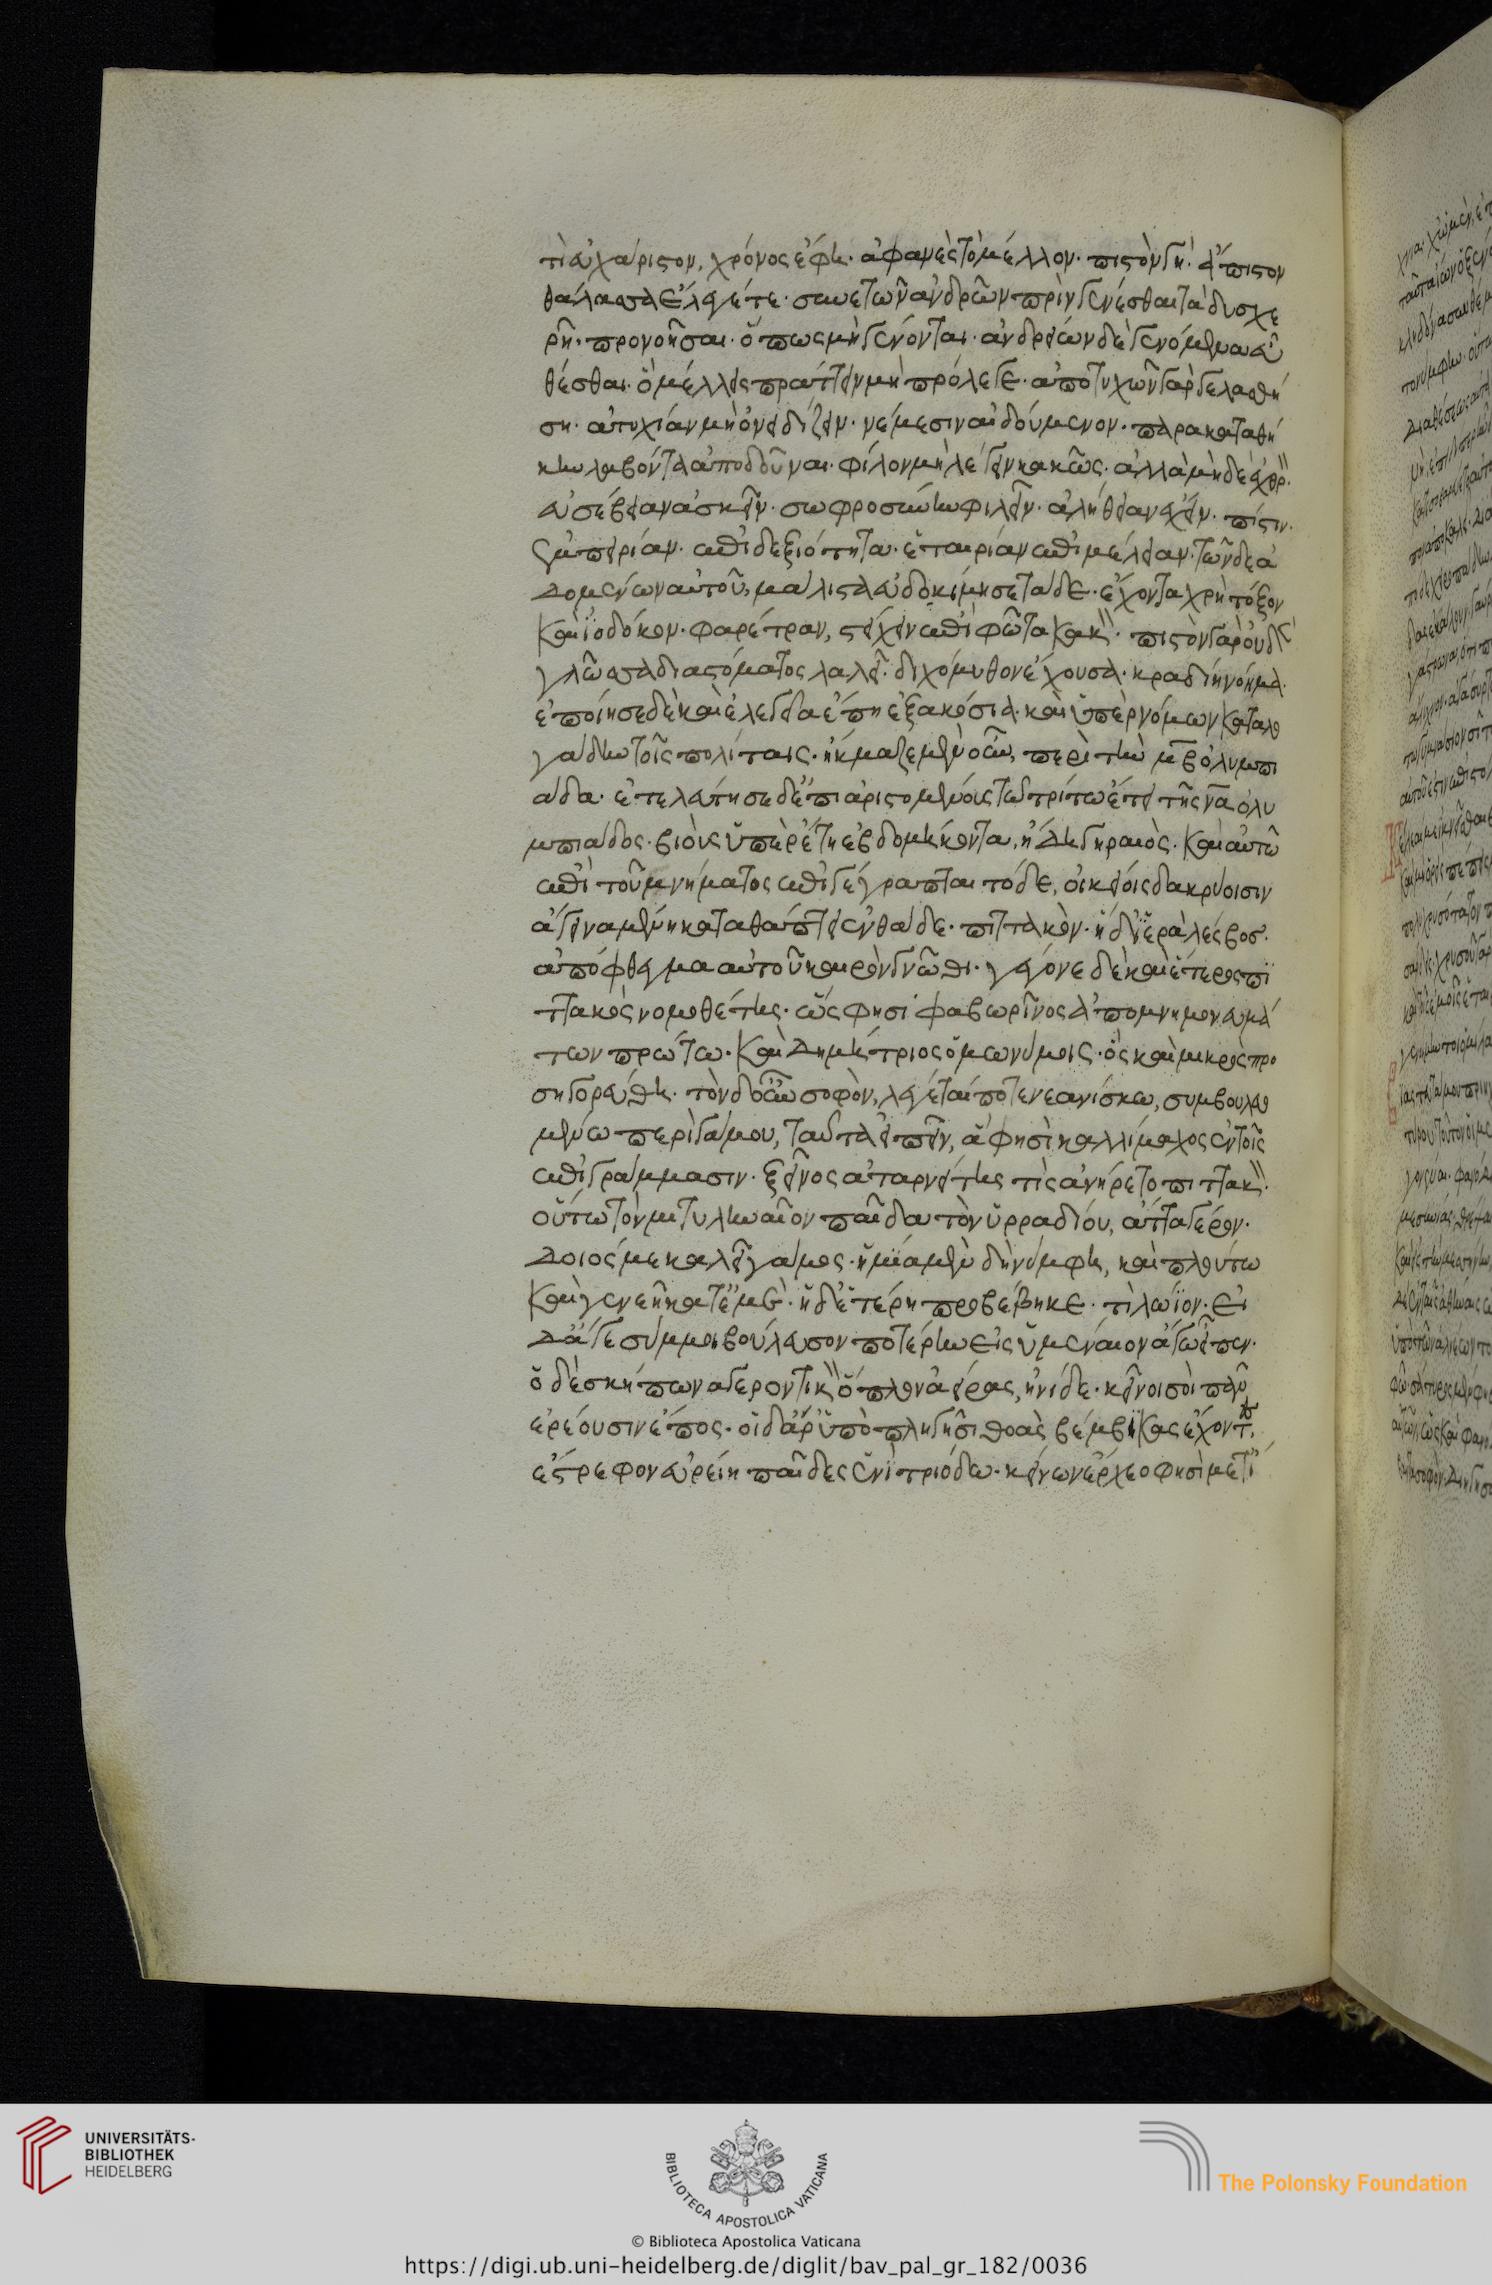 τὶ εὐχάριστον, χρόνος ἔφη· ἀφανὲς τὸ μέλλον· πιστὸν γῆ· ἄπιστον
θάλασσα· ἔλεγέ τε· συνετῶν ἀνδρῶν πρὶν γενέσθαι τὰ δυσχε
ρῆ· προνοῆσαι· ὅπως μὴ γένονται· ἀνδρείων δὲ γενόμενα εὖ
θέσθαι· ὃ μέλλεις πράττειν μὴ πρόλεγε· ἀποτυχὼν γὰρ γελασθή
ση· ἀτυχίαν μὴ ὀνειδίζειν· νέμεσιν αἰδούμενον· παρακαταθή
κην λαβόντα ἀποδοῦναι· φίλον μὴ λέγειν κακῶς· ἀλλὰ μὴ δὲ ἐχθρὸν·
εὐσέβειαν ἀσκεῖν· σωφροσύνην φιλεῖν· ἀλήθειαν ἔχειν· πίστιν·
ἐμπειρίαν· ἐπιδεξιότητα· ἑταιρίαν ἐπιμέλειαν· τῶν δὲ ἀ
δομένων αὐτοῦ, μάλιστα εὐδοκίμησε τάδε· ἔχοντα χρὴ τόξον
καὶ ἰοδόκον· φαρέτραν, στείχειν ἐπὶ φῶτα κακὸν· πιστὸν γὰρ οὐδὲν
γλῶσσα διὰ στόματος λαλεῖ· διχόμυθον ἔχουσα· κραδίη νόημα·
ἐποίησε δὲ καὶ ἐλεγεῖα ἔπη ἑξακόσια· καὶ ὑπὲρ νόμων καταλο
γάδην τοῖς πολίταις· ἤκμαζε μὲν οὖν, περὶ τὴν μβ ὀλυμπι
άδα· ἐτελεύτησε δ' ἐπὶ ἀριστομένους τῶ τρίτω ἔτει τῆς νβ ὀλυ
μπιάδος· βιοὺς ὑπὲρ ἔτη ἑβδομήκοντα, ἤδη γηραιὸς· καὶ αὐτῶ
ἐπὶ τοῦ μνήματος ἐπιγέγραπται τόδε, οἰκείοις δακρύοισιν
ἁ γειναμένη καταθάπτει ἐνθάδε· πιττακὸν· ἥδ' ἱερὰ λέσβος·
ἀπόφθεγμα αὐτοῦ καιρὸν γνῶθι· γέγονε δὲ καὶ ἕτερος πι
ττακὸς νομοθέτης· ὥς φησι φαβωρῖνος ἀπομνημονευμά
των πρώτω· καὶ δημήτριος ὁμωνύμοις· ὃς καὶ μικρὸς προ
σηγορεύθη· τὸν δ' οὖν σοφὸν, λέγεται ποτε νεανίσκω, συμβουλευο
μένω περὶ γάμου, ταῦτα εἰπεῖν, ἅ φησὶ καλλίμαχος ἐν τοῖς
ἐπιγράμμασιν· ξεῖνος ἀταρνείτης τὶς ἀνήρετο πιττακὸν·
οὕτω τὸν μιτυληναῖον παῖδα τὸν ὑρραδίου, ἄττα γέρον·
δοιός με καλεῖ γάμος· ἡ μία μὲν δὴ νύμφη, καὶ πλούτω
καὶ γενεῆ κατ' ἐμὲ· ἡ δ' ἑτέρη προβέβηκε· τὶ λώϊον· εἰ
δ' ἄγε σύμμοι βούλευσον ποτέρην εἰς ὑμέναιον ἄγω εἶπεν·
ὁ δὲ σκήπωνα γεροντικὸν ὅπλον ἀείρας, ἠνίδε· κεῖνοι σοὶ πᾶν
ἐρέουσιν ἔπος· οἱ δ' ἄρ' ὑπὸ πληγῆσι θοὰς βέμβικας ἔχοντες
ἔστρεφον εὐρείη παῖδες ἐνὶ τριόδω· κείνων ἔρχεο φησὶ μετ'
UNIVERSITÄTS-
BIBLIOTHEK
HEIDELBERG
BIBLIOTECA APOSTOLICA VATICANA
The Polonsky Foundation
© Biblioteca Apostolica Vaticana
https://digi.ub.uni-heidelberg.de/diglit/bav_pal_gr_182/0036